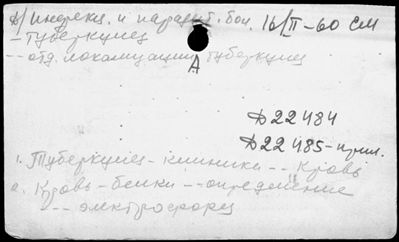 А/ Инфекц. и паразит. бол. 16/II-60 СМ
- Туберкулез
-- отд. локализации туберкулез
А
Д22484
Д22485-прил.
1. Туберкулез - клиника -- Кровь
2. Кровь - белки -- определение
-- электрофорез